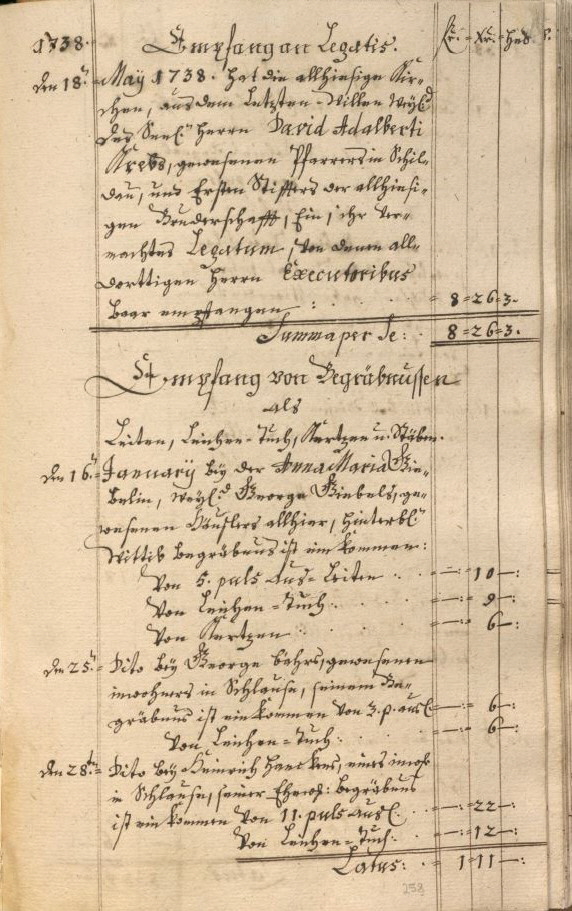 1738. Empfang an Legatis. fl. = Xr. = hel.
den 18t. May 1738. hat die allhiesige Kir=
chen, aus dem Letzten=Willen Weyl.
des Seel. Herrn David Adalberti
Krebs, gewesenen Pfarrers in Schil=
dau, und Ersten Stiffters der allhiesi=
gen Bruderschafft, Ein, ihr Ver=
machtes Legatum, von denen all=
dorttigen Herrn Executoribus
baar empfangen : = 8 = 26 = 3.
Summa per Se: 8 = 26 = 3.
Empfang von Begräbnussen
als
Leiten, Leichen=Tuch, Kertzen u. Stäben.
den 16t. January bey der Anna Maria Gie=
belin, Weyl. George Giebels, ge=
wesenen Häußlers allhier, hinterbl.
Wittib begräbnus ist einkommen:
Von 5. puls aus=Leiten —: 10 —:
Von Leichen=Tuch —: 9 —:
Von Kertzen —: 6 —:
den 25t. Dito bey George bährs, gewesenen
inwohners in Schlause, seinem Be=
gräbnus ist einkommen von 3. p. ausl. —: 6 —:
Von Leichen=Tuch: —: 6 —:
den 28t. Dito bey Heinrich Hanckens, eines inwoh.
in Schlause, seiner Ehew: begräbnus
ist einkommen Von 11. puls ausl. —: 22 —:
Von Leichen=Tuch: —: 12 —:
Latus: 1 = 11 —:
258